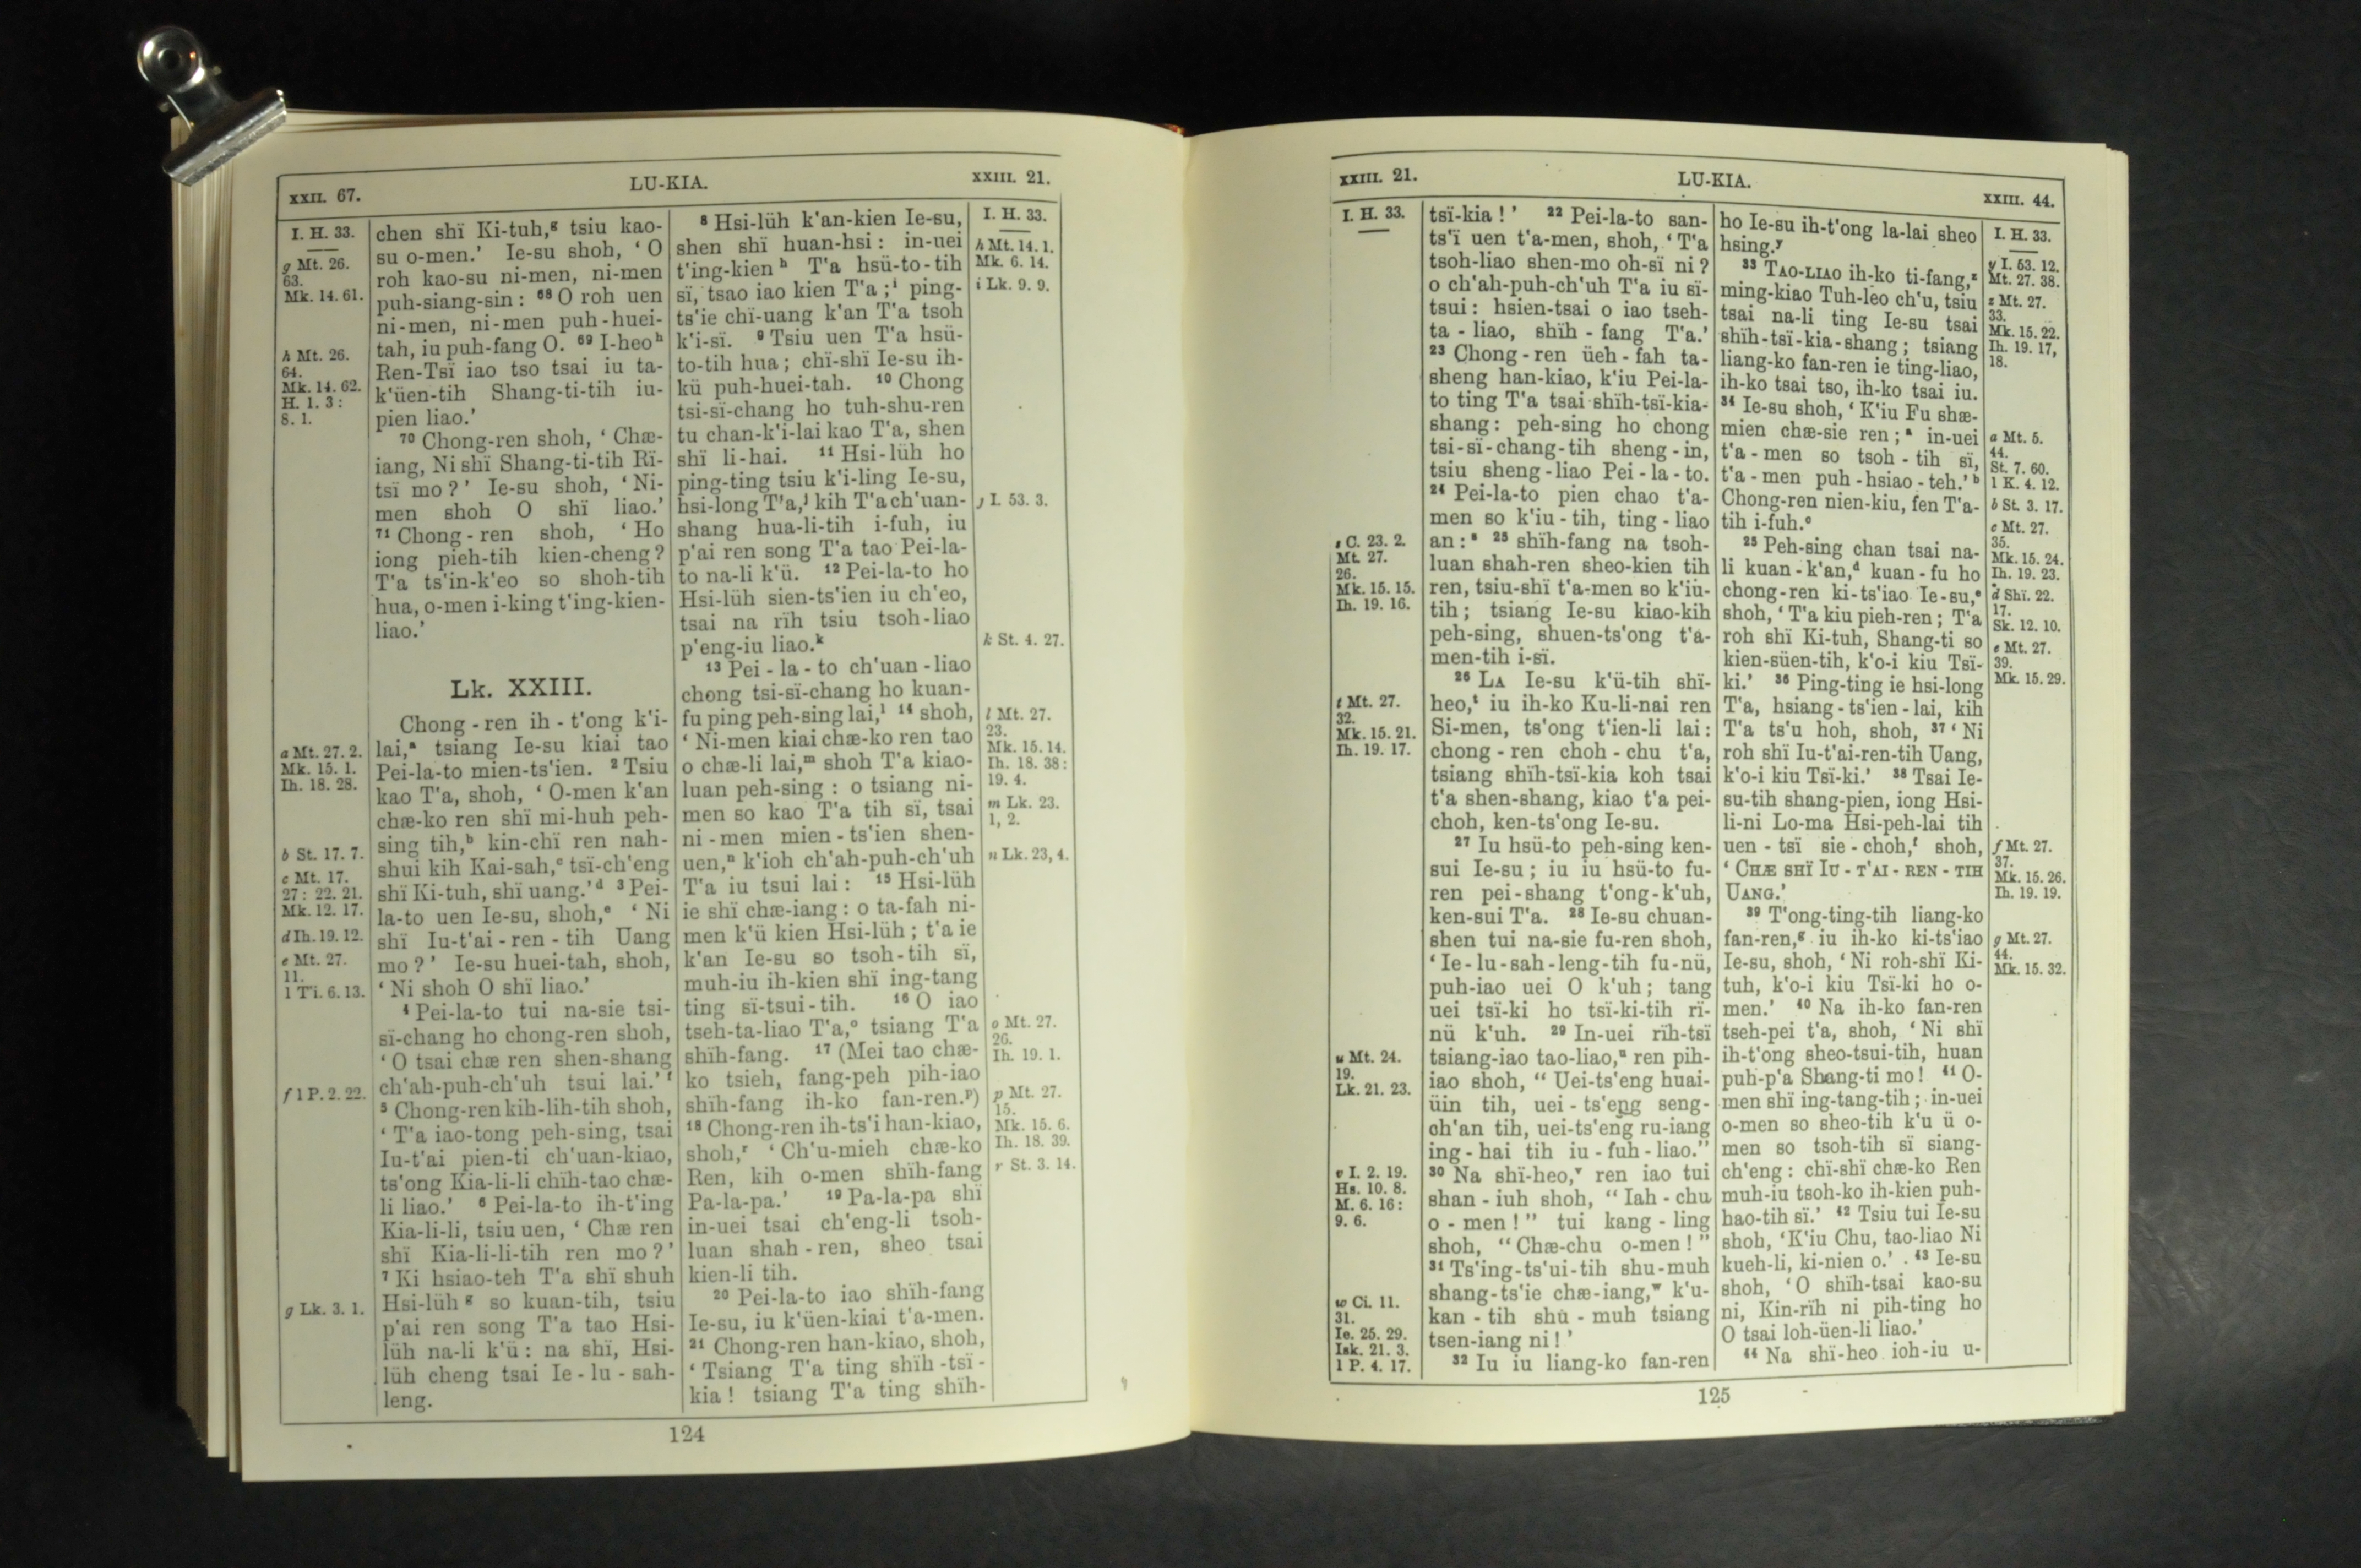 XXII. 67.
LU-KIA.
XXIII. 21.
I. H. 33.
g Mt. 26.
63.
Mk. 14. 61.
h Mt. 26.
64.
Mk. 14. 62.
H. 1. 3 :
8. 1.
a Mt. 27. 2.
Mk. 15. 1.
Ih. 18. 28.
b St. 17. 7.
c Mt. 17.
27 : 22. 21.
Mk. 12. 17.
d Ih. 19. 12.
e Mt. 27.
11.
1 Ti. 6. 13.
f 1 P. 2. 22.
g Lk. 3. 1.
chen shï Ki-tuh,ᵍ tsiu kao-
su o-men.’ Ie-su shoh, ‘ O
roh kao-su ni-men, ni-men
puh-siang-sin : ⁶⁸ O roh uen
ni-men, ni-men puh-huei-
tah, iu puh-fang O. ⁶⁹ I-heoʰ
Ren-Tsï iao tso tsai iu ta-
k‘üen-tih Shang-ti-tih iu-
pien liao.’
⁷⁰ Chong-ren shoh, ‘ Chæ-
iang, Ni shï Shang-ti-tih Rï-
tsï mo ? ’ Ie-su shoh, ‘ Ni-
men shoh O shï liao.’
⁷¹ Chong-ren shoh, ‘ Ho
iong pieh-tih kien-cheng ?
T‘a ts‘in-k‘eo so shoh-tih
hua, o-men i-king t‘ing-kien-
liao.’
Lk. XXIII.
Chong-ren ih-t‘ong k‘i-
lai,ᵃ tsiang Ie-su kiai tao
Pei-la-to mien-ts‘ien. ² Tsiu
kao T‘a, shoh, ‘ O-men k‘an
chæ-ko ren shï mi-huh peh-
sing tih,ᵇ kin-chï ren nah-
shui kih Kai-sah,ᶜ tsï-ch‘eng
shï Ki-tuh, shï uang.’ᵈ ³ Pei-
la-to uen Ie-su, shoh,ᵉ ‘ Ni
shï Iu-t‘ai-ren-tih Uang
mo ? ’ Ie-su huei-tah, shoh,
‘ Ni shoh O shï liao.’
⁴ Pei-la-to tui na-sie tsi-
sï-chang ho chong-ren shoh,
‘ O tsai chæ ren shen-shang
ch‘ah-puh-ch‘uh tsui lai.’ᶠ
⁵ Chong-ren kih-lih-tih shoh,
‘ T‘a iao-tong peh-sing, tsai
Iu-t‘ai pien-ti ch‘uan-kiao,
ts‘ong Kia-li-li chïh-tao chæ-
li liao.’ ⁶ Pei-la-to ih-t‘ing
Kia-li-li, tsiu uen, ‘ Chæ ren
shï Kia-li-li-tih ren mo ? ’
⁷ Ki hsiao-teh T‘a shï shuh
Hsi-lüh ᵍ so kuan-tih, tsiu
p‘ai ren song T‘a tao Hsi-
lüh na-li k‘ü : na shï, Hsi-
lüh cheng tsai Ie-lu-sah-
leng.
⁸ Hsi-lüh k‘an-kien Ie-su,
shen shï huan-hsi : in-uei
t‘ing-kien ʰ T‘a hsü-to-tih
sï, tsao iao kien T‘a ;ⁱ ping-
ts‘ie chï-uang k‘an T‘a tsoh
k‘i-sï. ⁹ Tsiu uen T‘a hsü-
to-tih hua ; chï-shï Ie-su ih-
kü puh-huei-tah. ¹⁰ Chong
tsi-sï-chang ho tuh-shu-ren
tu chan-k‘i-lai kao T‘a, shen
shï li-hai. ¹¹ Hsi-lüh ho
ping-ting tsiu k‘i-ling Ie-su,
hsi-long T‘a,ʲ kih T‘a ch‘uan-
shang hua-li-tih i-fuh, iu
p‘ai ren song T‘a tao Pei-la-
to na-li k‘ü. ¹² Pei-la-to ho
Hsi-lüh sien-ts‘ien iu ch‘eo,
tsai na rïh tsiu tsoh-liao
p‘eng-iu liao.ᵏ
¹³ Pei-la-to ch‘uan-liao
chong tsi-sï-chang ho kuan-
fu ping peh-sing lai,ˡ ¹⁴ shoh,
‘ Ni-men kiai chæ-ko ren tao
o chæ-li lai,ᵐ shoh T‘a kiao-
luan peh-sing : o tsiang ni-
men so kao T‘a tih sï, tsai
ni-men mien-ts‘ien shen-
uen,ⁿ k‘ioh ch‘ah-puh-ch‘uh
T‘a iu tsui lai : ¹⁵ Hsi-lüh
ie shï chæ-iang : o ta-fah ni-
men k‘ü kien Hsi-lüh ; t‘a ie
k‘an Ie-su so tsoh-tih sï,
muh-iu ih-kien shï ing-tang
ting sï-tsui-tih. ¹⁶ O iao
tseh-ta-liao T‘a,ᵒ tsiang T‘a
shïh-fang. ¹⁷ (Mei tao chæ-
ko tsieh, fang-peh pih-iao
shïh-fang ih-ko fan-ren.ᵖ)
¹⁸ Chong-ren ih-ts‘i han-kiao,
shoh,ʳ ‘ Ch‘u-mieh chæ-ko
Ren, kih o-men shïh-fang
Pa-la-pa.’ ¹⁹ Pa-la-pa shï
in-uei tsai ch‘eng-li tsoh-
luan shah-ren, sheo tsai
kien-li tih.
²⁰ Pei-la-to iao shïh-fang
Ie-su, iu k‘üen-kiai t‘a-men.
²¹ Chong-ren han-kiao, shoh,
‘ Tsiang T‘a ting shïh-tsï-
kia ! tsiang T‘a ting shïh-
I. H. 33.
h Mt. 14. 1.
Mk. 6. 14.
i Lk. 9. 9.
j I. 53. 3.
k St. 4. 27.
l Mt. 27.
23.
Mk. 15. 14.
Ih. 18. 38 :
19. 4.
m Lk. 23.
1, 2.
n Lk. 23, 4.
o Mt. 27.
26.
Ih. 19. 1.
p Mt. 27.
15.
Mk. 15. 6.
Ih. 18. 39.
r St. 3. 14.
124
XXIII. 21.
LU-KIA.
XXIII. 44.
I. H. 33.
s C. 23. 2.
Mt. 27.
26.
Mk. 15. 15.
Ih. 19. 16.
t Mt. 27.
32.
Mk. 15. 21.
Ih. 19. 17.
u Mt. 24.
19.
Lk. 21. 23.
v I. 2. 19.
Hs. 10. 8.
M. 6. 16 :
9. 6.
w Ci. 11.
31.
Ie. 25. 29.
Isk. 21. 3.
1 P. 4. 17.
tsï-kia ! ’ ²² Pei-la-to san-
ts‘ï uen t‘a-men, shoh, ‘ T‘a
tsoh-liao shen-mo oh-sï ni ?
o ch‘ah-puh-ch‘uh T‘a iu sï-
tsui : hsien-tsai o iao tseh-
ta-liao, shïh-fang T‘a.’
²³ Chong-ren üeh-fah ta-
sheng han-kiao, k‘iu Pei-la-
to ting T‘a tsai shïh-tsï-kia-
shang : peh-sing ho chong
tsi-sï-chang-tih sheng-in,
tsiu sheng-liao Pei-la-to.
²⁴ Pei-la-to pien chao t‘a-
men so k‘iu-tih, ting-liao
an : ˢ ²⁵ shïh-fang na tsoh-
luan shah-ren sheo-kien tih
ren, tsiu-shï t‘a-men so k‘iu-
tih ; tsiang Ie-su kiao-kih
peh-sing, shuen-ts‘ong t‘a-
men-tih i-sï.
²⁶ LA Ie-su k‘ü-tih shï-
heo,ᵗ iu ih-ko Ku-li-nai ren
Si-men, ts‘ong t‘ien-li lai :
chong-ren choh-chu t‘a,
tsiang shïh-tsï-kia koh tsai
t‘a shen-shang, kiao t‘a pei-
choh, ken-ts‘ong Ie-su.
²⁷ Iu hsü-to peh-sing ken-
sui Ie-su ; iu iu hsü-to fu-
ren pei-shang t‘ong-k‘uh,
ken-sui T‘a. ²⁸ Ie-su chuan-
shen tui na-sie fu-ren shoh,
‘ Ie-lu-sah-leng-tih fu-nü,
puh-iao uei O k‘uh ; tang
uei tsï-ki ho tsï-ki-tih rï-
nü k‘uh. ²⁹ In-uei rïh-tsï
tsiang-iao tao-liao,ᵘ ren pih-
iao shoh, “ Uei-ts‘eng huai-
üin tih, uei-ts‘eng seng-
ch‘an tih, uei-ts‘eng ru-iang
ing-hai tih iu-fuh-liao.”
³⁰ Na shï-heo,ᵛ ren iao tui
shan-iuh shoh, “ Iah-chu
o-men ! ” tui kang-ling
shoh, “ Chæ-chu o-men ! ”
³¹ Ts‘ing-ts‘ui-tih shu-muh
shang-ts‘ie chæ-iang,ʷ k‘u-
kan-tih shu-muh tsiang
tsen-iang ni ! ’
³² Iu iu liang-ko fan-ren
ho Ie-su ih-t‘ong la-lai sheo
hsing.ʸ
³³ TAO-LIAO ih-ko ti-fang,ᶻ
ming-kiao Tuh-leo ch‘u, tsiu
tsai na-li ting Ie-su tsai
shïh-tsï-kia-shang ; tsiang
liang-ko fan-ren ie ting-liao,
ih-ko tsai tso, ih-ko tsai iu.
³⁴ Ie-su shoh, ‘ K‘iu Fu shæ-
mien chæ-sie ren ;ᵃ in-uei
t‘a-men so tsoh-tih sï,
t‘a-men puh-hsiao-teh.’ᵇ
Chong-ren nien-kiu, fen T‘a-
tih i-fuh.ᶜ
³⁵ Peh-sing chan tsai na-
li kuan-k‘an,ᵈ kuan-fu ho
chong-ren ki-ts‘iao Ie-su,ᵉ
shoh, ‘ T‘a kiu pieh-ren ; T‘a
roh shï Ki-tuh, Shang-ti so
kien-süen-tih, k‘o-i kiu Tsï-
ki.’ ³⁶ Ping-ting ie hsi-long
T‘a, hsiang-ts‘ien-lai, kih
T‘a ts‘u hoh, shoh, ³⁷ ‘ Ni
roh shï Iu-t‘ai-ren-tih Uang,
k‘o-i kiu Tsï-ki.’ ³⁸ Tsai Ie-
su-tih shang-pien, iong Hsi-
li-ni Lo-ma Hsi-peh-lai tih
uen-tsï sie-choh,ᶠ shoh,
‘ CHÆ SHÏ IU-T‘AI-REN-TIH
UANG.’
³⁹ T‘ong-ting-tih liang-ko
fan-ren,ᵍ iu ih-ko ki-ts‘iao
Ie-su, shoh, ‘ Ni roh-shï Ki-
tuh, k‘o-i kiu Tsï-ki ho o-
men.’ ⁴⁰ Na ih-ko fan-ren
tseh-pei t‘a, shoh, ‘ Ni shï
ih-t‘ong sheo-tsui-tih, huan
puh-p‘a Shang-ti mo ! ⁴¹ O-
men shï ing-tang-tih ; in-uei
o-men so sheo-tih k‘u ü o-
men so tsoh-tih sï siang-
ch‘eng : chï-shï chæ-ko Ren
muh-iu tsoh-ko ih-kien puh-
hao-tih sï.’ ⁴² Tsiu tui Ie-su
shoh, ‘ K‘iu Chu, tao-liao Ni
kueh-li, ki-nien o.’ ⁴³ Ie-su
shoh, ‘ O shïh-tsai kao-su
ni, Kin-rïh ni pih-ting ho
O tsai loh-üen-li liao.’
⁴⁴ Na shï-heo ioh-iu u-
I. H. 33.
y I. 53. 12.
Mt. 27. 38.
z Mt. 27.
33.
Mk. 15. 22.
Ih. 19. 17,
18.
a Mt. 5.
44.
St. 7. 60.
1 K. 4. 12.
b St. 3. 17.
c Mt. 27.
35.
Mk. 15. 24.
Ih. 19. 23.
d Shï. 22.
17.
Sk. 12. 10.
e Mt. 27.
39.
Mk. 15. 29.
f Mt. 27.
37.
Mk. 15. 26.
Ih. 19. 19.
g Mt. 27.
44.
Mk. 15. 32.
125